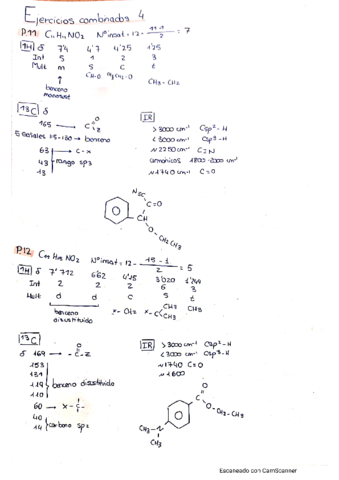 Ejercicios combinados 4
P.11 C11H11NO2 Nº insat = 12 - 11-1/2 = 7
1H δ 7'4 4'7 4'25 1'25
Int 5 1 2 3
Mult m s c t
↑ CH-O CH2-O CH3-CH2
benceno
monosust
13C δ
165 → C=O
Z
5 señales 115-130 → benceno
63 → C-X
43 rango sp3
13
IR
>3000 cm-1 Csp2-H
<3000 cm-1 Csp3-H
~2250 cm-1 C≡N
armónicos 1800-2000 cm-1
~1740 cm-1 C=O
N≡C C=O
CH
O-CH2CH3
P.12 C11H15NO2 Nº insat = 12 - 15-1/2 = 5
1H δ 7'9 7'2 6'62 4'25 3'020 1'29
Int 2 2 2 6 3
Mult d d c s t
benceno disustituido X-CH2 X-C CH3 CH3
13C
δ 169 → -C-Z
O
153
131
119 benceno disustituido
110
60 → X-C-
40
14 carbono sp3
IR
>3000 cm-1 Csp2-H
<3000 cm-1 Csp3-H
~1740 C=O
~1600
O
C
O-CH2-CH3
CH3-N
CH3
Escaneado con CamScanner